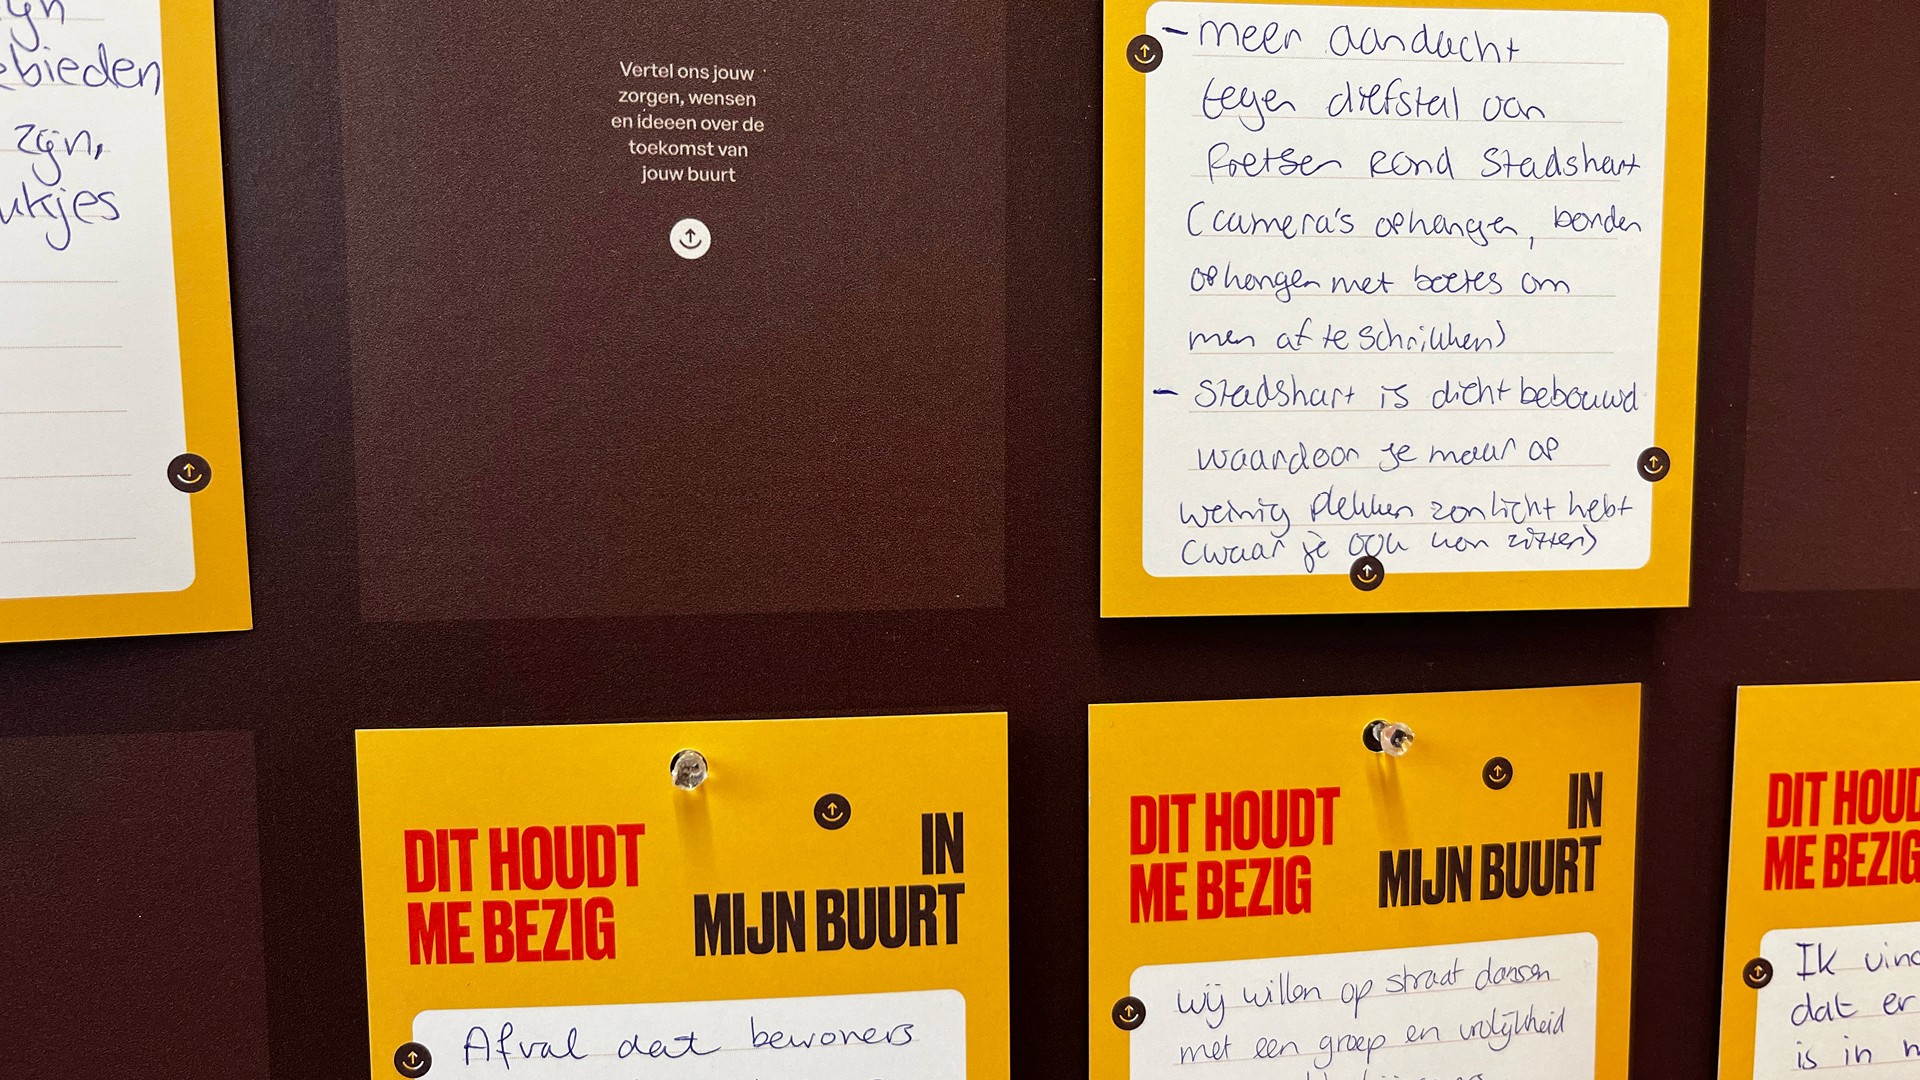 ebieden
zijn,
ukjes
Vertel ons jouw
zorgen, wensen
en ideeen over de
toekomst van
jouw buurt
- meer aandacht
tegen diefstal van
fietsen rond Stadshart
(camera's ophangen, borden
ophangen met boetes om
men af te schrikken)
- Stadshart is dicht bebouwd
waardoor je maar op
weinig plekken zonlicht hebt
(waar je ook kan zitten)
DIT HOUDT
ME BEZIG
IN
MIJN BUURT
Afval dat bewoners
DIT HOUDT
ME BEZIG
IN
MIJN BUURT
wij willen op straat dansen
met een groep en vrolijkheid
DIT HOUD
ME BEZIG
Ik vind
dat er
is in